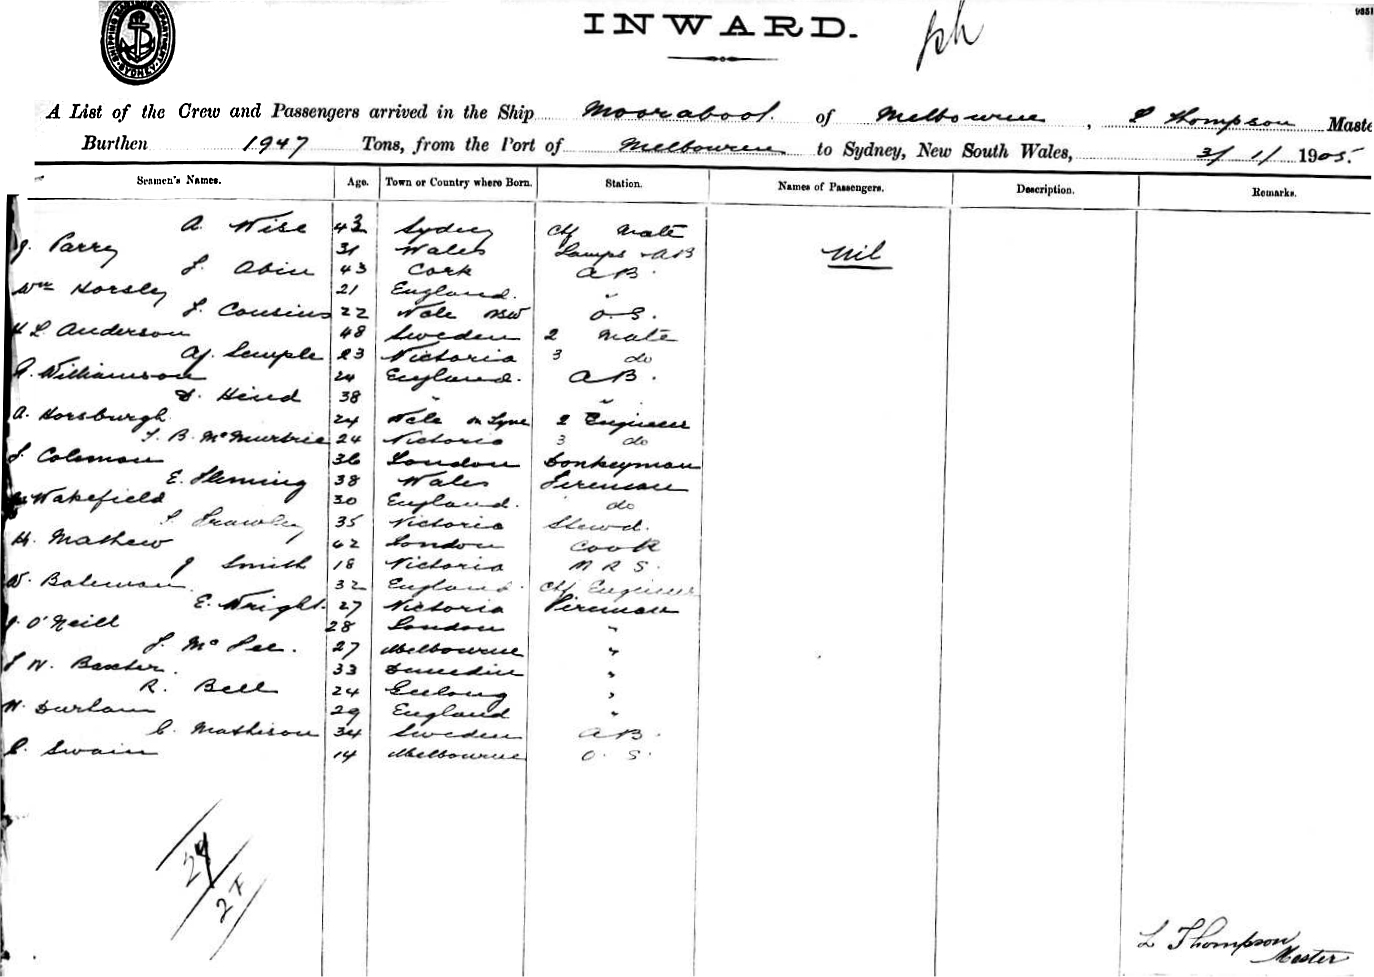 SHIPPING MASTER'S DEPARTMENT SYDNEY
INWARD.
A List of the Crew and Passengers arrived in the Ship Moorabool of Melbourne, L Thompson Maste
Burthen 1947 Tons, from the Port of Melbourne to Sydney, New South Wales, 3/1/1905.
Seamen's Names. Age. Town or Country where Born. Station. Names of Passengers. Description. Remarks.
A. Wise 43 Sydney Chf Mate
J. Parry 31 Wales Lamps & AB Nil
43 Cork AB.
Wm Horsley 21 England. "
J. Cousins 22 NSW O.S.
H L Anderson 48 Sweden 2 Mate
AJ. Semple 23 Victoria 3 do
A. Williamson 24 England. AB.
Hind 38 " "
A. Horsburgh 24 2 Engineer
T. B. McMurtrie 24 Victoria 3 do
J. Coleman 36 London Donkeyman
E. Fleming 38 Wales Fireman
Wakefield 30 England. do
Frawley 35 Victoria Stewd.
H. Mathew 62 London Cook
J Smith 18 Victoria M R S.
W. Bateman 32 England. Chf Engineer
E. Wright. 27 Victoria Fireman
J. O'Neill 28 London "
J. Mc Gee. 27 Melbourne "
J W. Baxter. 33 Dunedin "
R. Bell 24 Geelong "
W. Durham 29 England "
C. Mathison 34 Sweden AB.
C. Swain 14 Melbourne O. S.
24
2F
L Thompson
Master